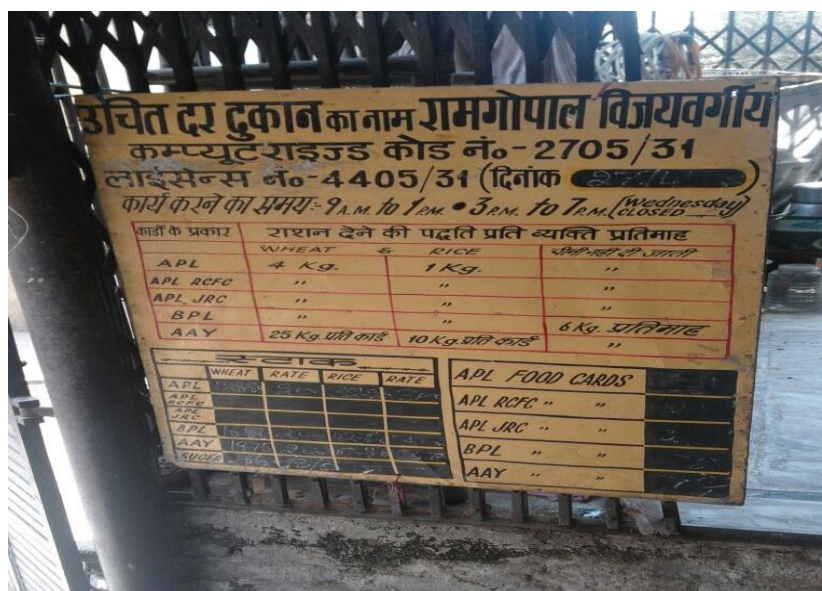 उचित दर दुकान का नाम रामगोपाल विजयवर्गीय
कम्प्यूटराइज्ड कोड नं०-2705/31
लाईसेन्स नं०-4405/31 (दिनांक )
कार्य करने का समय:- 9 A.M. to 1 P.M. • 3 P.M. to 7 P.M. (Wednesday CLOSED)
कार्डो के प्रकार राशन देने की पद्धति प्रति व्यक्ति प्रतिमाह
WHEAT & RICE चीनी नहीं दी जाती
APL 4 Kg. 1 Kg. ,,
APL RCFC ,, ,, ,,
APL JRC ,, ,, ,,
BPL ,, ,, 6 Kg. प्रतिमाह
AAY 25 Kg. प्रति कार्ड 10 Kg. प्रति कार्ड ,,
स्टाक
WHEAT RATE RICE RATE
APL
APL RCFC
APL JRC
BPL
AAY
SUGER
APL FOOD CARDS
APL RCFC ,, ,,
APL JRC ,, ,,
BPL ,, ,,
AAY ,, ,,